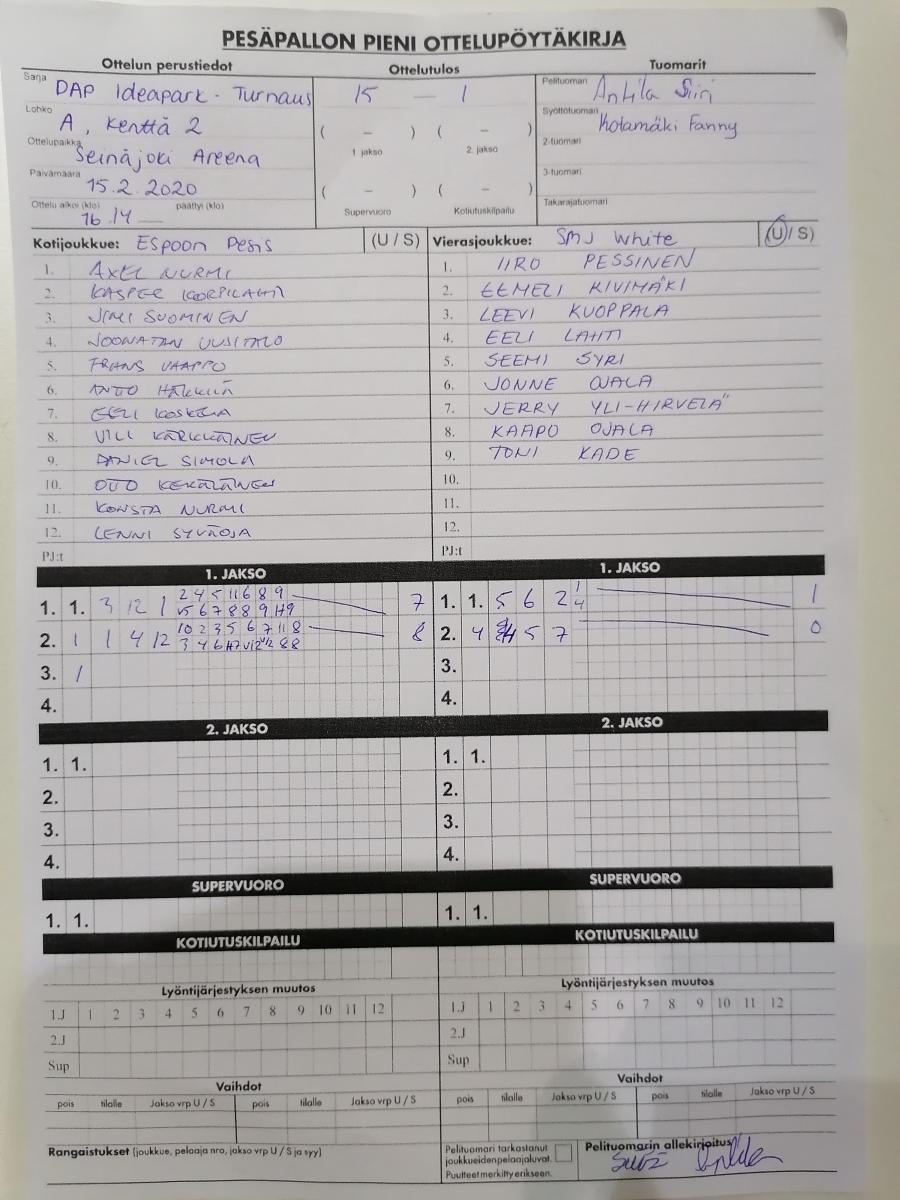 PESÄPALLON PIENI OTTELUPÖYTÄKIRJA
Ottelun perustiedot
Sarja DAP Ideapark - Turnaus
Lohko A, Kenttä 2
Ottelupaikka Seinäjoki Areena
Päivämäärä 15.2.2020
Ottelu alkoi (klo) 16.14 päättyi (klo)
Ottelutulos
15 — 1
( – ) ( – )
1. jakso 2. jakso
( – ) ( – )
Supervuoro Kotiutuskilpailu
Tuomarit
Pelituomari Antila Siiri
Syöttötuomari Kotamäki Fanny
2-tuomari
3-tuomari
Takarajatuomari
Kotijoukkue: Espoon Pesis (U / S)
1. AXEL NURMI
2. KASPER KORPILAHTI
3. JIMI SUOMINEN
4. JOONATAN UUSITALO
5. FRANS VAAPPO
6. ANTO
7. EELI KOSKELA
8. VILI KÄRKKÄINEN
9. DANIEL SIMOLA
10. OTTO KEKÄLÄINEN
11. KONSTA NURMI
12. LENNI SYVÄOJA
PJ:t
Vierasjoukkue: SMJ White (U / S)
1. IIRO PESSINEN
2. EEMELI KIVIMÄKI
3. LEEVI KUOPPALA
4. EELI LAHTI
5. SEEMI SYRI
6. JONNE OJALA
7. JERRY YLI-HIRVELÄ
8. KAAPO OJALA
9. TONI KADE
10.
11.
12.
PJ:t
1. JAKSO
1. 1. 3 12 1 7
2. 1 1 4 12 8
3. 1
4.
1. JAKSO
1. 1. 5 6 2 1
2. 4 5 7 0
3.
4.
2. JAKSO
1. 1.
2.
3.
4.
2. JAKSO
1. 1.
2.
3.
4.
SUPERVUORO
1. 1.
SUPERVUORO
1. 1.
KOTIUTUSKILPAILU
KOTIUTUSKILPAILU
Lyöntijärjestyksen muutos
1.J 1 2 3 4 5 6 7 8 9 10 11 12
2.J
Sup
Lyöntijärjestyksen muutos
1.J 1 2 3 4 5 6 7 8 9 10 11 12
2.J
Sup
Vaihdot
pois tilalle Jakso vrp U / S pois tilalle Jakso vrp U / S
Vaihdot
pois tilalle Jakso vrp U / S pois tilalle Jakso vrp U / S
Rangaistukset (joukkue, pelaaja nro, jakso vrp U / S ja syy)
Pelituomari tarkastanut
joukkueidenpelaajaluvat.
Puutteet merkitty erikseen.
Pelituomarin allekirjoitus